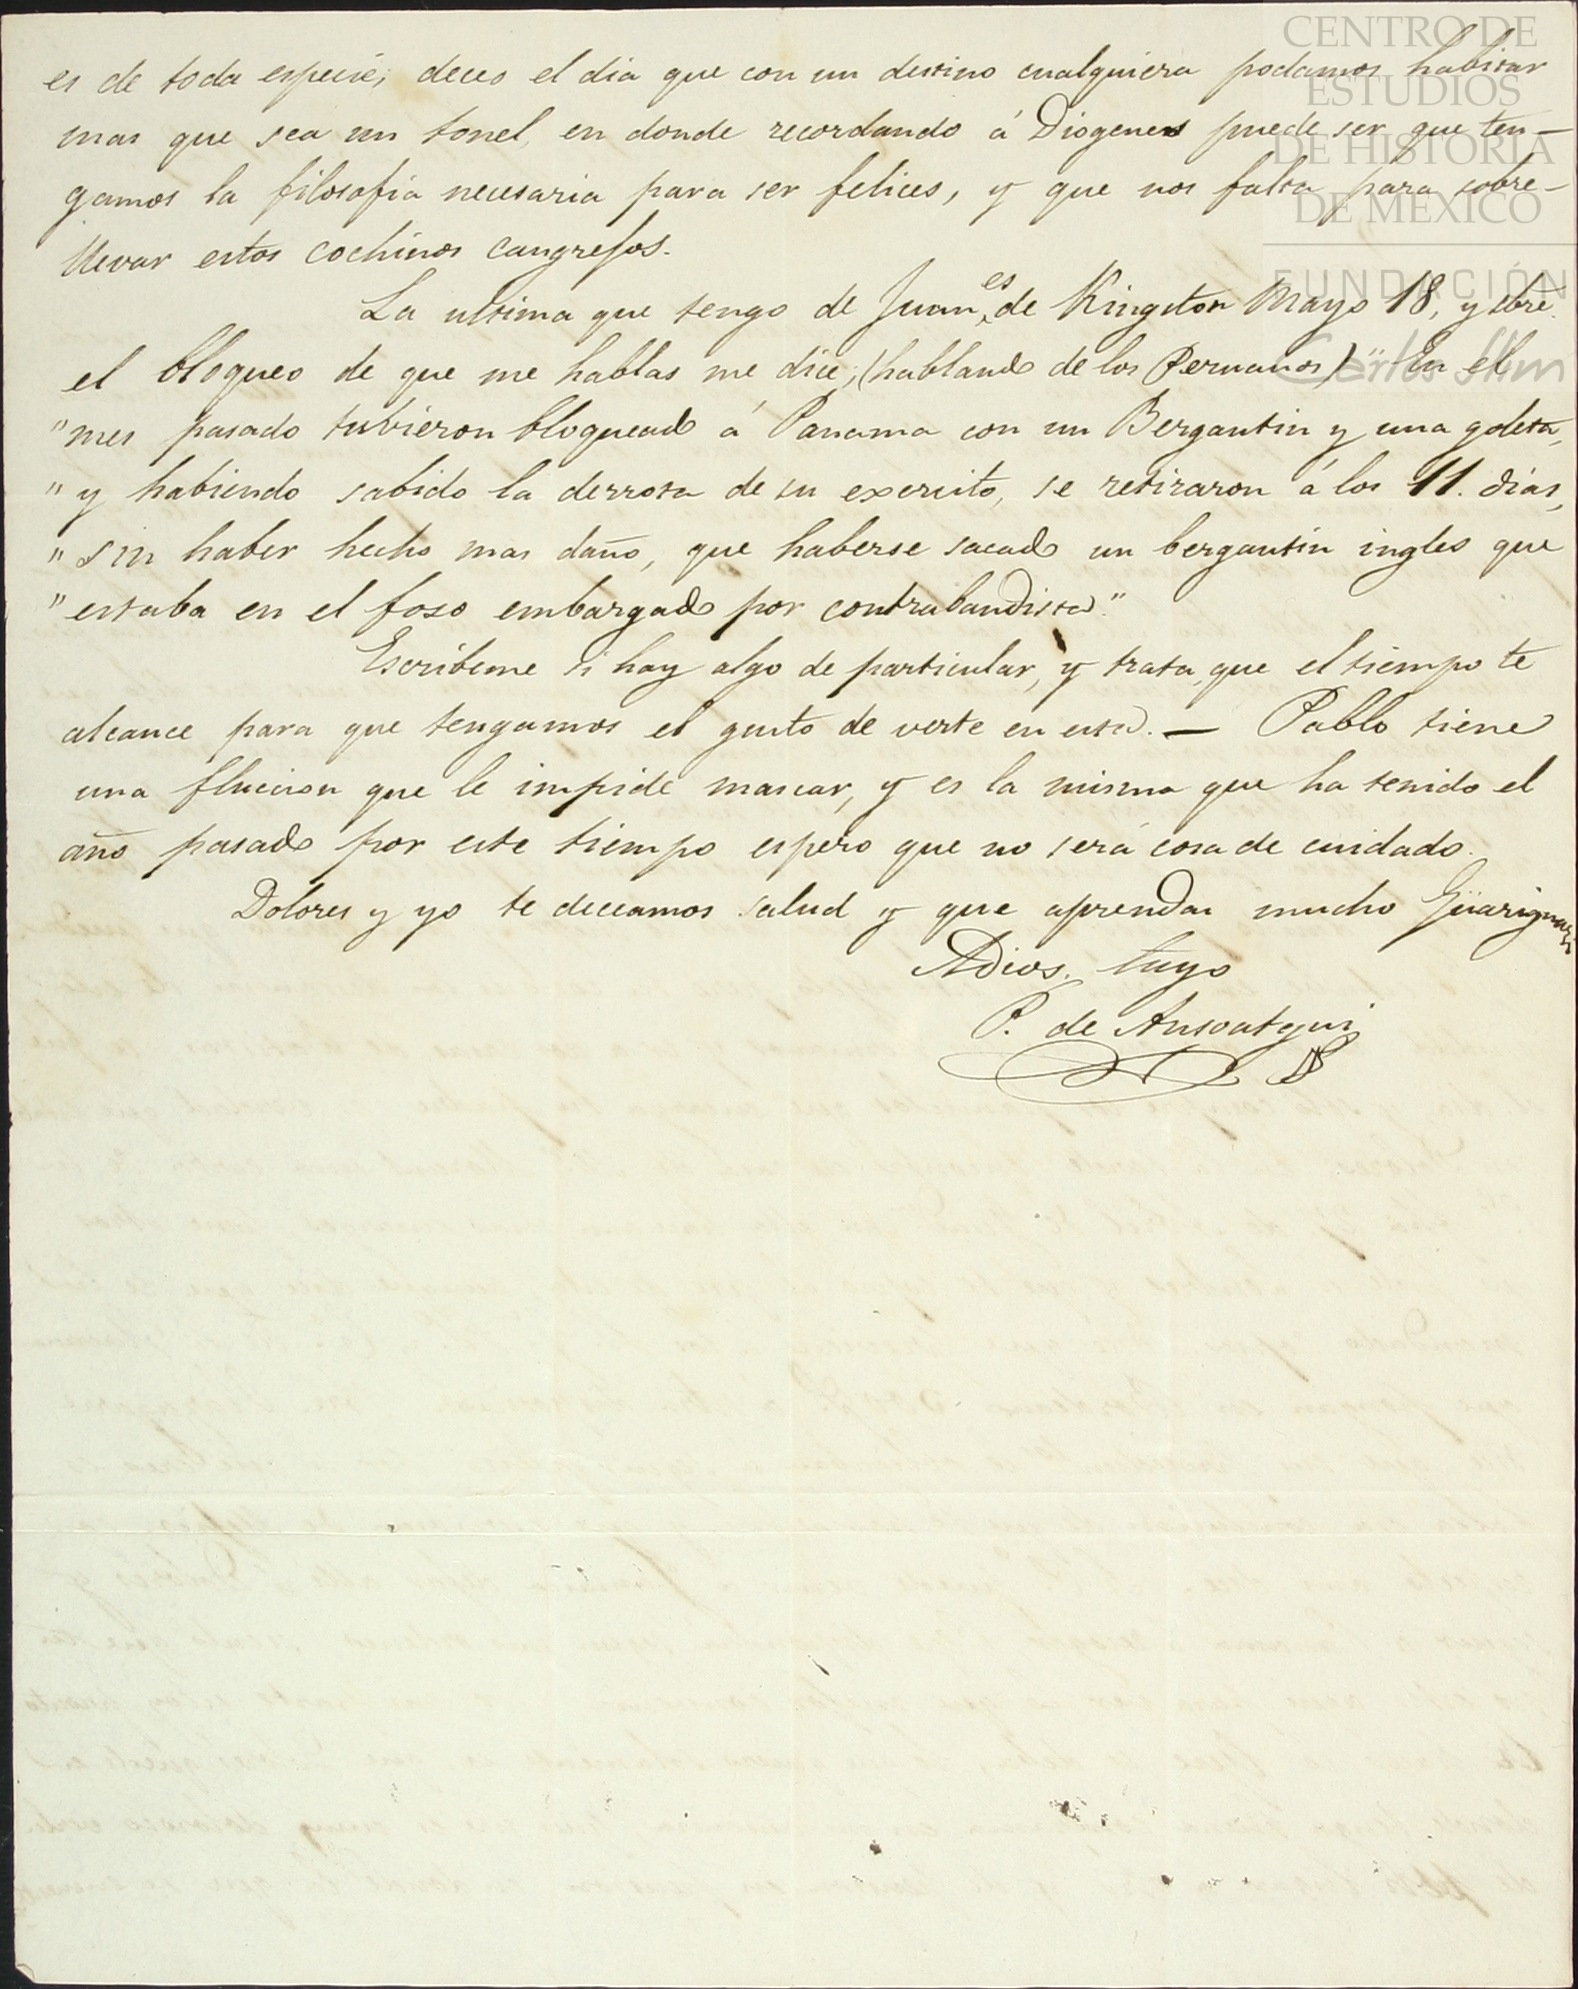 CENTRO DE
ESTUDIOS
DE HISTORIA
DE MEXICO
FUNDACIÓN
Carlos Slim
es de toda especie; deceo el dia que con un destino cualquiera podamos habitar
mas que sea un tonel, en donde recordando á Diogenes puede ser que ten-
gamos la filosofia necesaria para ser felices, y que nos falta para sobre-
llevar estos cochinos cangrejos.
La ultima que tengo de Juan, es de Kingston Mayo 18, y sbre.
el bloqueo de que me hablas me dice; (hablando de los Peruanos) " En el
" mes pasado tubieron bloqueado á Panama con un Bergantin y una goleta,
" y habiendo sabido la derrota de su exercito, se retiraron á los 11. dias,
" sin haber hecho mas daño, que haberse sacado un bergantin ingles que
" estaba en el foso embargado por contrabandista."
Escribeme si hay algo de particular, y trata, que el tiempo te
alcance para que tengamos el gusto de verte en esta. — Pablo tiene
una fluccion que le impide mascar, y es la misma que ha tenido el
año pasado por este tiempo espero que no será cosa de cuidado.
Dolores y yo te deceamos salud y que aprendas mucho
Adios. tuyo
P. de Ansoategui